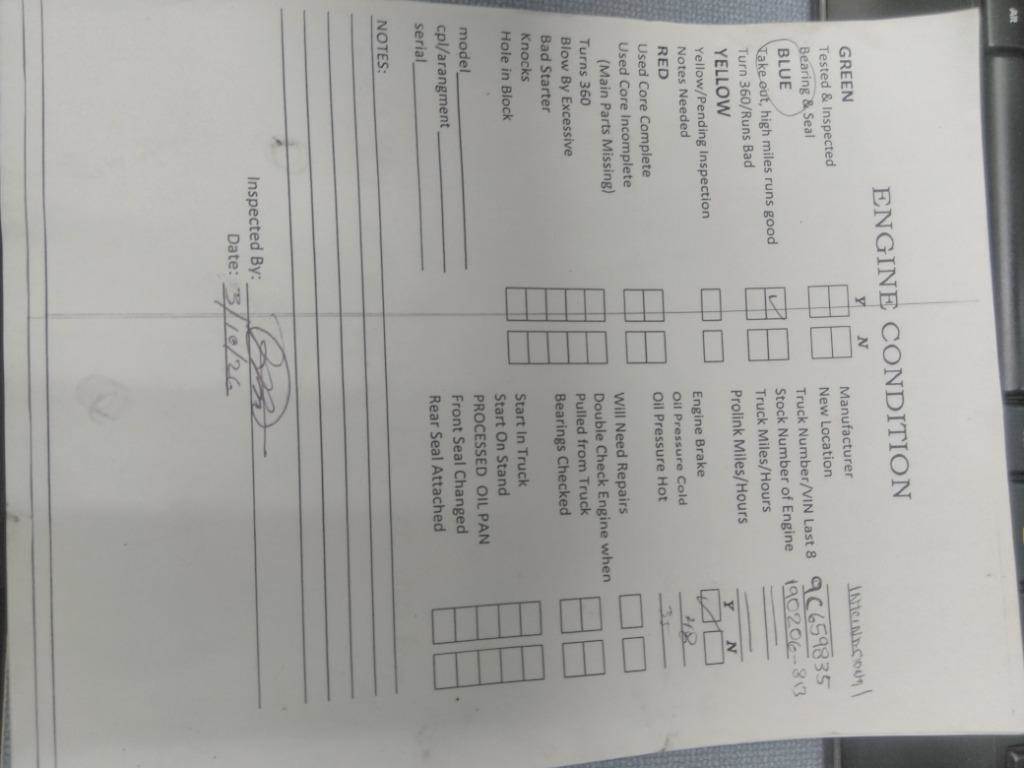 ENGINE CONDITION
Y N
GREEN
Tested & Inspected
Bearing & Seal
BLUE
Take out, high miles runs good
Turn 360/Runs Bad
YELLOW
Yellow/Pending Inspection
Notes Needed
RED
Used Core Complete
Used Core Incomplete
(Main Parts Missing)
Turns 360
Blow By Excessive
Bad Starter
Knocks
Hole in Block
model
cpl/arangment
serial
Manufacturer International
New Location
Truck Number/VIN Last 8 9C659835
Stock Number of Engine 190206-813
Truck Miles/Hours
Prolink Miles/Hours
Y N
Engine Brake
Oil Pressure Cold 48
Oil Pressure Hot
Will Need Repairs
Double Check Engine when
Pulled from Truck
Bearings Checked
Start In Truck
Start On Stand
PROCESSED OIL PAN
Front Seal Changed
Rear Seal Attached
NOTES:
Inspected By:
Date: 3/10/26
AR